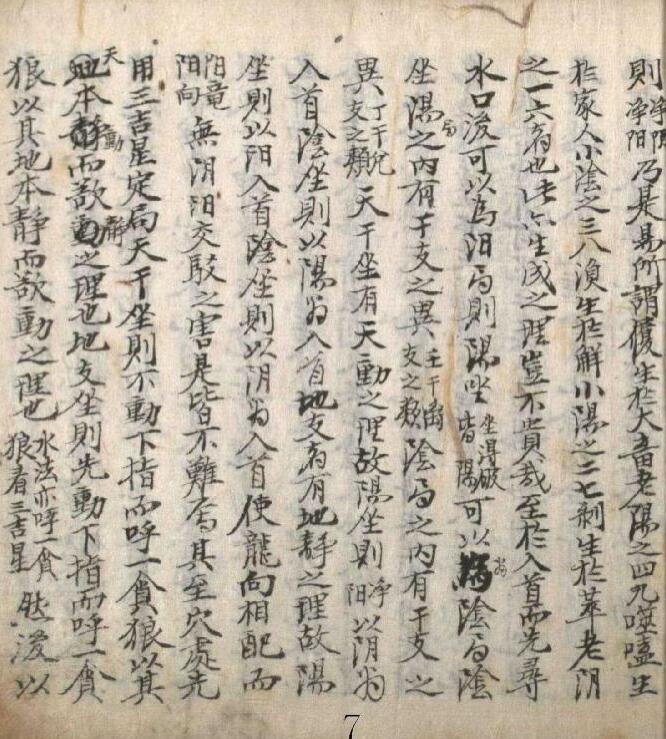 則淨陰淨阳乃是易所謂復生於大畜老陽之四九噬嗑生
於家人小陰之三八渙生於解小陽之二七剝生於萃老阴
之一六者也此亦生成之理豈不貴哉至於入首而先尋
水口後可以爲阳局則陽坐坐得破皆陽可以爲陰局陰
坐陽局之內有干支之異壬干子支之類陰局之內有干支之
異丁干兌支之類天干坐有天動之理故陽坐則淨阳以阴爲
入首陰坐則以陽爲入首地支者有地静之理故陽
坐則以阳入首陰坐則以阴爲入首使龍向相配而
阳竜阳向無阴阳交駁之害是皆不難爲其至穴處先
用三吉星定局天干坐則不動下指而呼一貪狼以其
天本動而欲静之理也地支坐則先動下指而呼一貪
狼以其地本静而欲動之理也水法亦呼一貪狼看三吉星然後以
7